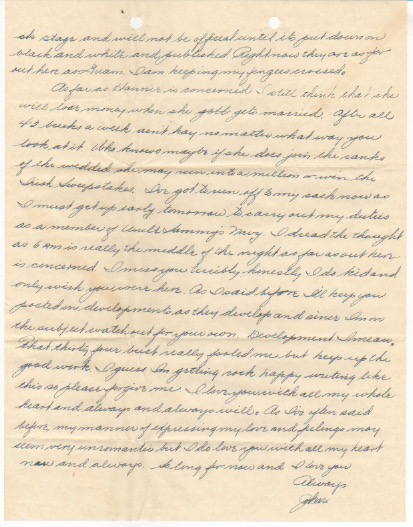 its stage and will not be official until it's put down on
black and white and published. Right now they are as far
out here as Guam. I am keeping my fingers crossed.
As far as is concerned I still think that she
will lose money when she gets married. After all
42 bucks a week ain't hay no matter what way you
look at it. Who knows maybe if she does join the ranks
of the wedded she may run into a million or win the
Irish Sweepstakes. I've got to run off to my sack now as
I must get up early tomorrow to carry out my duties
as a member of Uncle Sammy's Navy. I dread the thought
as 6 am is really the middle of the night as far as out here
is concerned. I miss you terribly, honestly I do kid and
only wish you were here. As I said before I'll keep you
posted on developments as they develop and since I'm on
the subject watch out for your own. Development I mean.
That thirty four bust really fooled me but keep up the
good work. I guess I'm getting sack happy writing like
this so please forgive me. I love you with all my whole
heart and always and always will. As I've often said
before my manner of expressing my love and feelings may
seem very unromantic but I do love you with all my heart
now and always. So long for now and I love you
Always
John